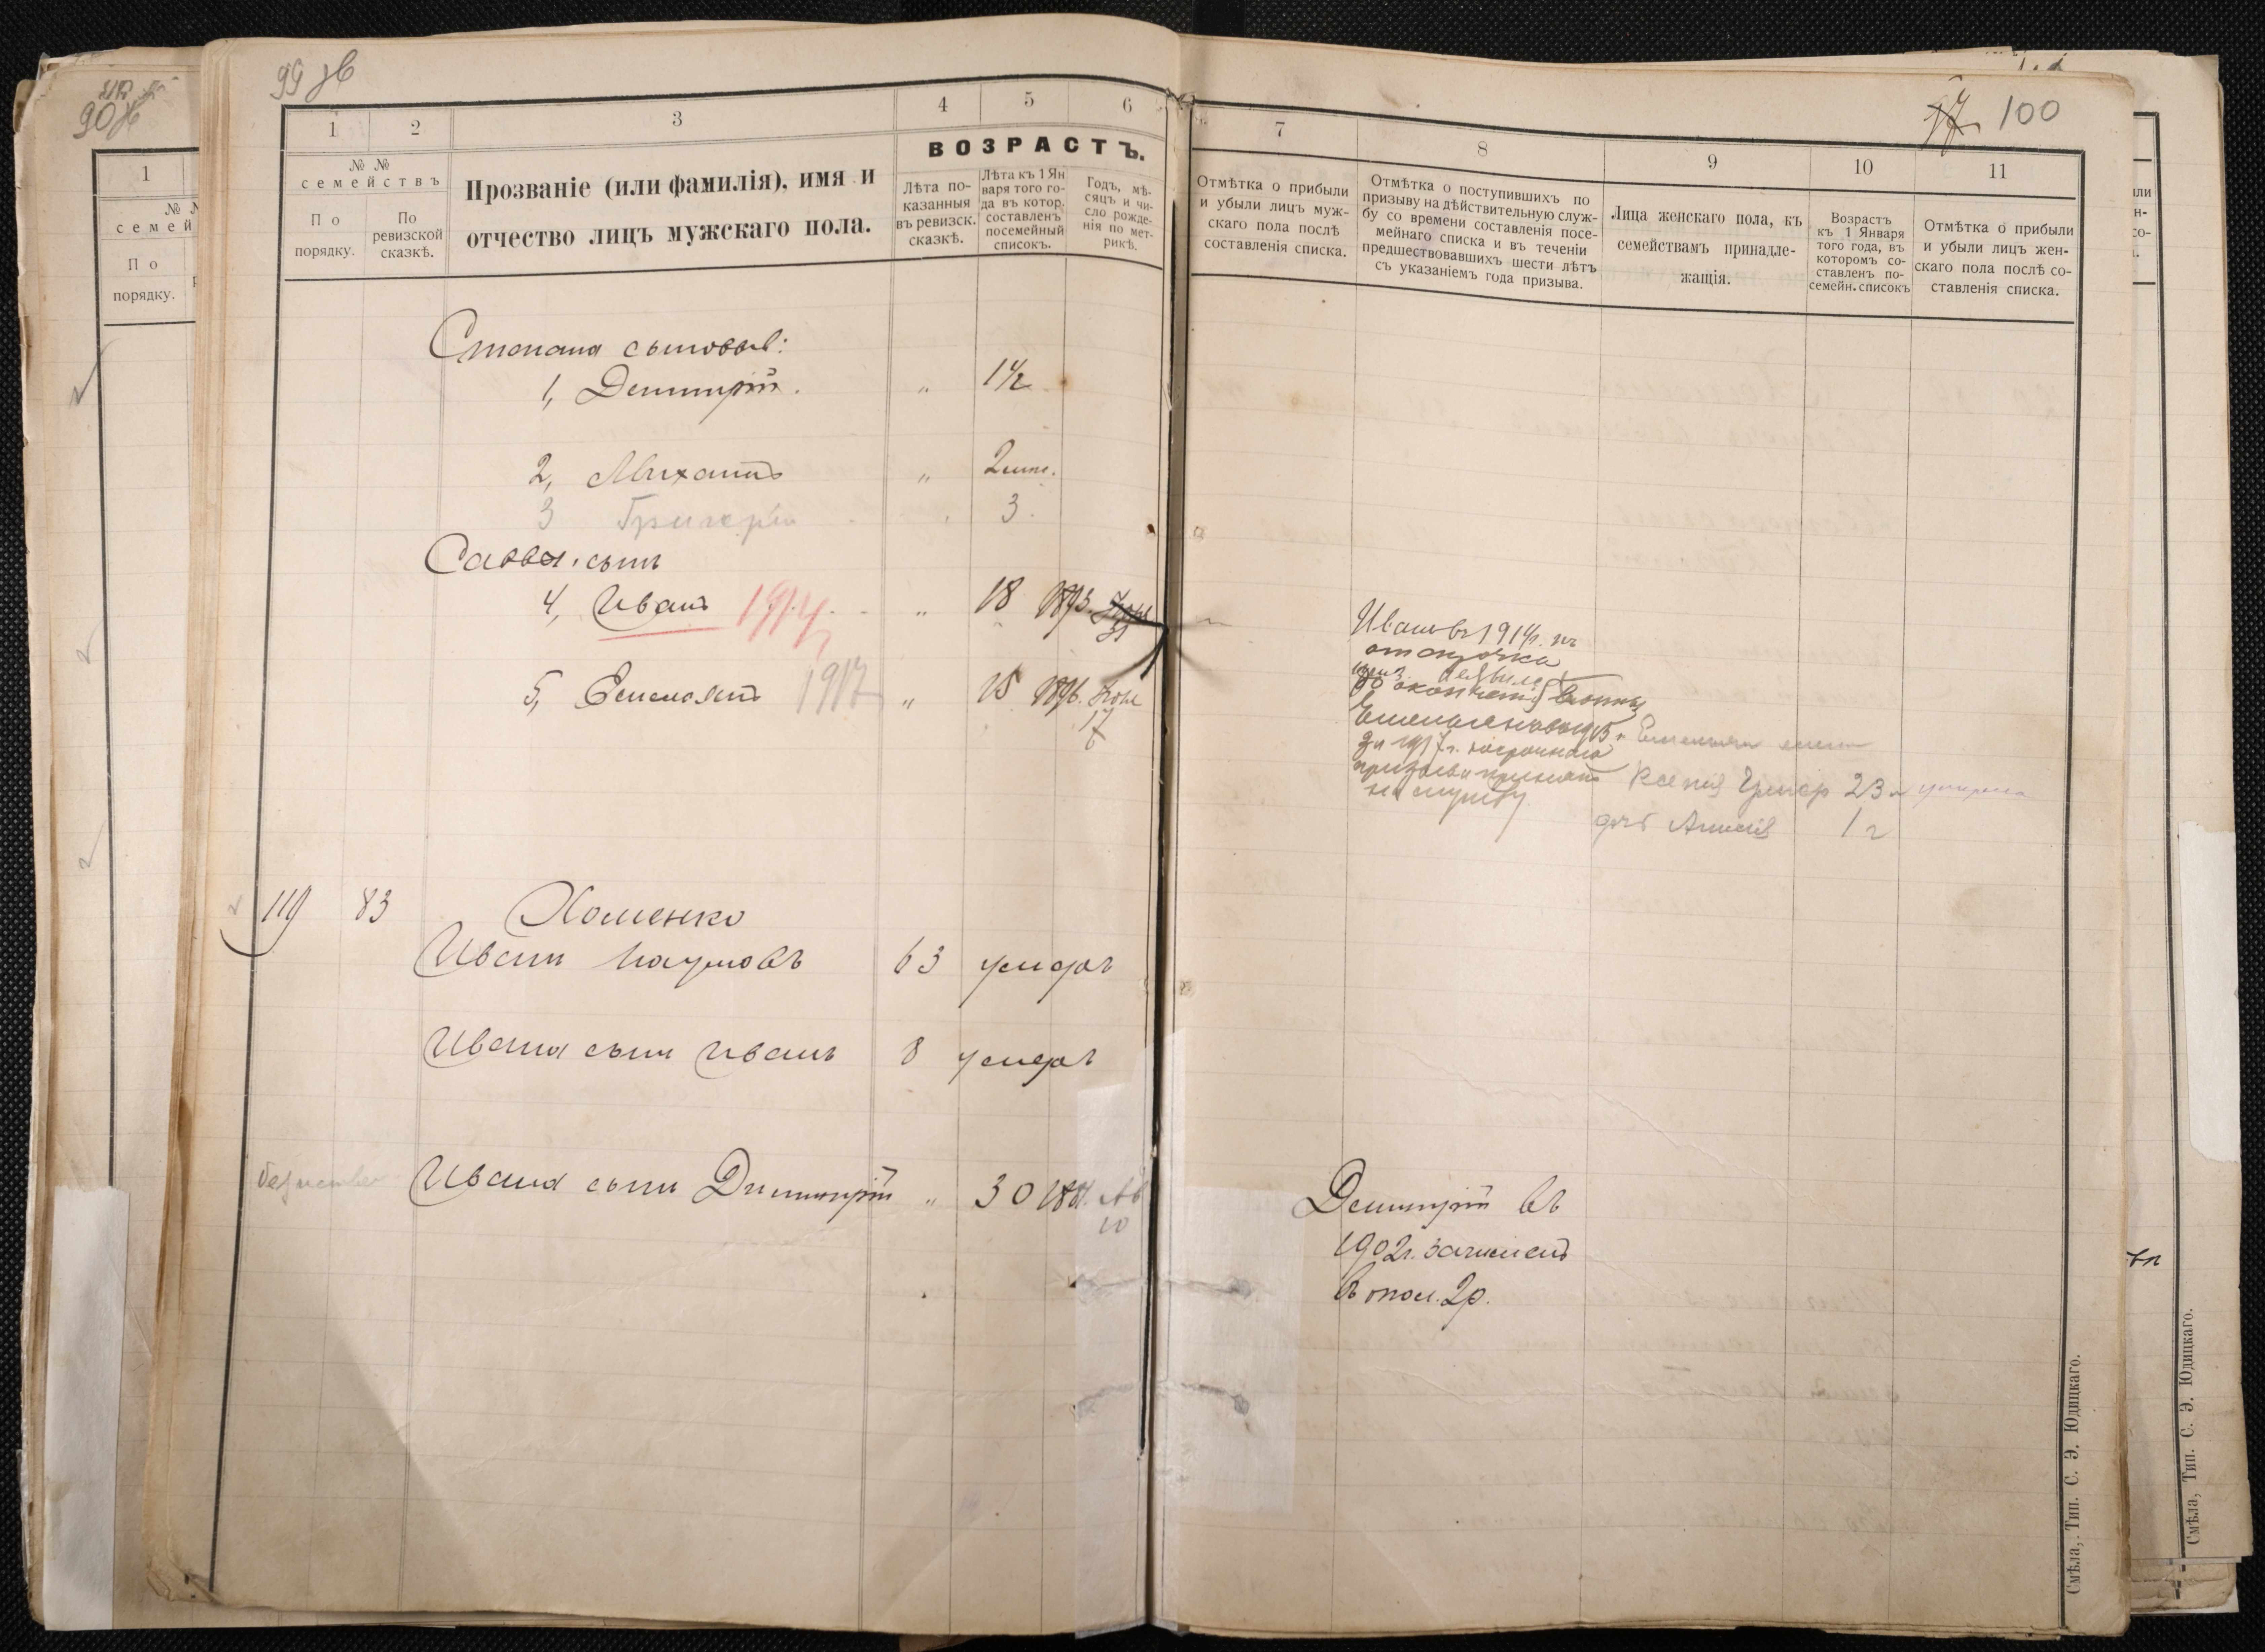 99 зв
1
2
3
4
5
6
№ №
семействъ
По
порядку.
По
ревизской
сказкѣ.
Прозваніе (или фамилія), имя и
отчество лицъ мужскаго пола.
ВОЗРАСТЪ.
Лѣта по-
казанныя
въ ревизск.
сказкѣ.
Лѣта къ 1 Ян
варя того го-
да въ котор.
составленъ
посемейный
списокъ.
Годъ, мѣ-
сяцъ и чи-
сло рожде-
нія по мет-
рикѣ.
Степана сыновья:
1, Димитрій. " 1½
2, Михаилъ " 2
3 Григорій 3.
Саввы сын
4, Иванъ 1914 " 18 1893.
5, Емельянъ 1917 " 15 1896. Іюля 17
119 83 Хоменко
Иван Наумовъ 63 умеръ
Ивана сын Иванъ 8 умеръ
Ивана сын Димитрій " 30 1881. Ав 10
100
7
8
9
10
11
Отмѣтка о прибыли
и убыли лицъ муж-
скаго пола послѣ
составленія списка.
Отмѣтка о поступившихъ по
призыву на дѣйствительную служ-
бу со времени составленія посе-
мейнаго списка и въ теченіи
предшествовавшихъ шести лѣтъ
съ указаніемъ года призыва.
Лица женскаго пола, къ
семействамъ принадле-
жащія.
Возрастъ
къ 1 Января
того года, въ
которомъ со-
ставленъ по-
семейн. списокъ
Отмѣтка о прибыли
и убыли лицъ жен-
скаго пола послѣ со-
ставленія списка.
Иванъ въ 1914 г.
отсрочка
до окончанія
Емельянъ въ 1915 г.
за 1917 г. досрочнаго
призыва принятъ
на службу.
Емельяна жена
Ксенія 23 умерла
дочь 1 г
Димитрій въ
1902 г. зачисленъ
в опол. 2 р.
Смѣла, Тип. С. Э. Юдицкаго.
90 зв
1
№ №
семей
По
порядку.
Смѣла, Тип. С. Э. Юдицкаго.